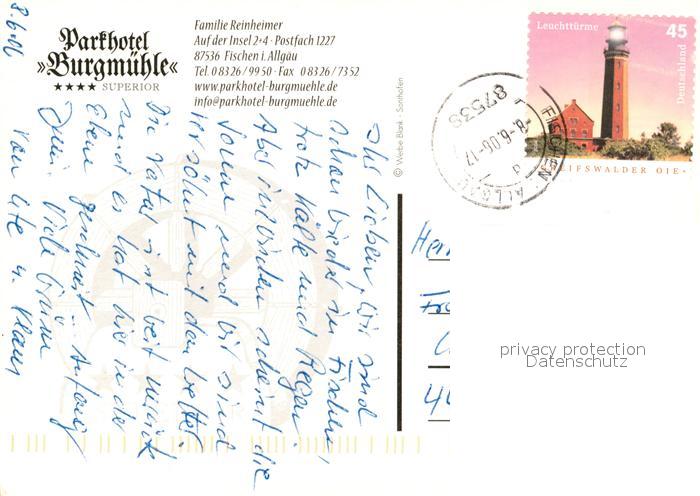 Parkhotel
»Burgmühle«
★★★★ SUPERIOR
Familie Reinheimer
Auf der Insel 2+4 · Postfach 1227
87536 Fischen i. Allgäu
Tel. 0 83 26 / 99 50 · Fax 0 83 26 / 73 52
www.parkhotel-burgmuehle.de
info@parkhotel-burgmuehle.de
© Werbe Blank · Sonthofen
Leuchttürme
45
Deutschland
GREIFSWALDER OIE
87538
-8.-6.06-17
FISCHEN ALLGÄU
d
8.6.06
Ihr Lieben, wir sind
schon wieder in Fischen,
trotz Kälte und Regen.
Aber inzwischen scheint die
Sonne und wir sind
versöhnt mit dem Wetter.
Die Natur ist weit zurück
und es hat hier in der
Ebene geschneit. Anfang
Juni. Viele Grüße
von Ute u. Klaus
privacy protection
Datenschutz